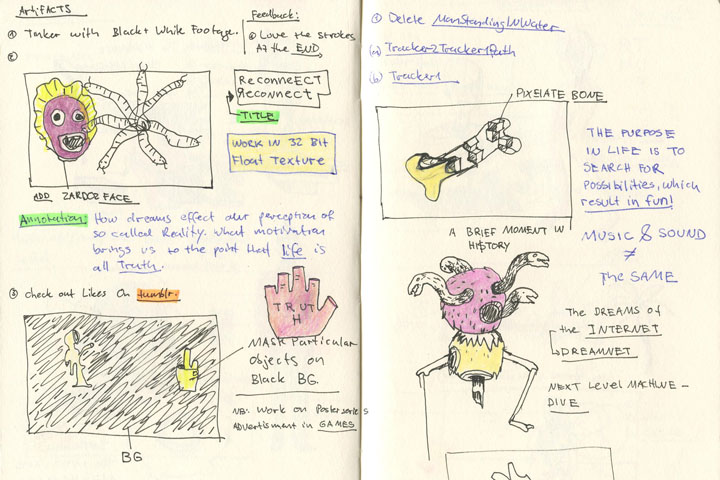 ARTIFACTS
① Tinker with Black + White Footage.
Feedback:
@ Love the strokes
AT the END
②
ReconneECT
Reconnect
TITLE
WORK IN 32 BIT
Float Texture
ADD ZARDOZ FACE
Annotation: How dreams effect our perception of
so called Reality. What motivation
brings us to the point that life is
all Truth.
③ check out Likes On tumblr.
TRUT
H
MASK Particular
Objects on
Black BG.
NB: Work on Poster series
Advertisment in GAMES
BG
① Delete ManStandingInWater
(a) Tracker2Tracker1Path
(b) Tracker1
PIXELATE BONE
THE PURPOSE
IN LIFE IS TO
SEARCH FOR
POSSIBILITIES, which
result in fun!
A BRIEF MOMENT IN
HISTORY
MUSIC & SOUND
≠
The SAME
The DREAMS OF
the INTERNET
DREAMNET
NEXT LEVEL MACHINE -
DIVE